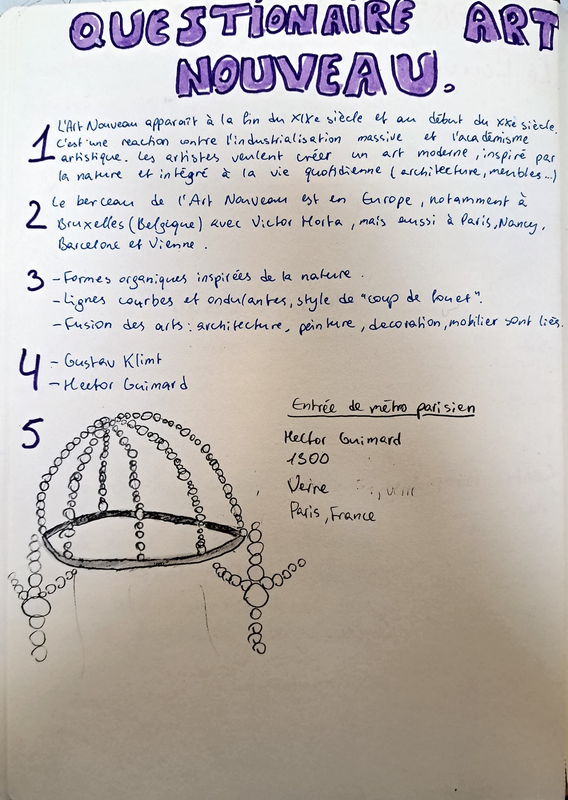 QUESTIONAIRE ART
NOUVEAU.
1 L'Art Nouveau apparaît à la fin du XIXe siècle et au début du XXe siècle.
C'est une reaction contre l'industrialisation massive et l'académisme
artistique. Les artistes veulent créer un art moderne, inspiré par
la nature et intégré à la vie quotidienne (architecture, meubles...)
2 Le berceau de l'Art Nouveau est en Europe, notamment à
Bruxelles (Belgique) avec Victor Horta, mais aussi à Paris, Nancy,
Barcelone et Vienne.
3 - Formes organiques inspirées de la nature.
- Lignes courbes et ondulantes, style de "coup de fouet".
- Fusion des arts: architecture, peinture, decoration, mobilier sont liés.
4 - Gustav Klimt
- Hector Guimard
5
Entrée de métro parisien
Hector Guimard
1900
Verre
Paris, France